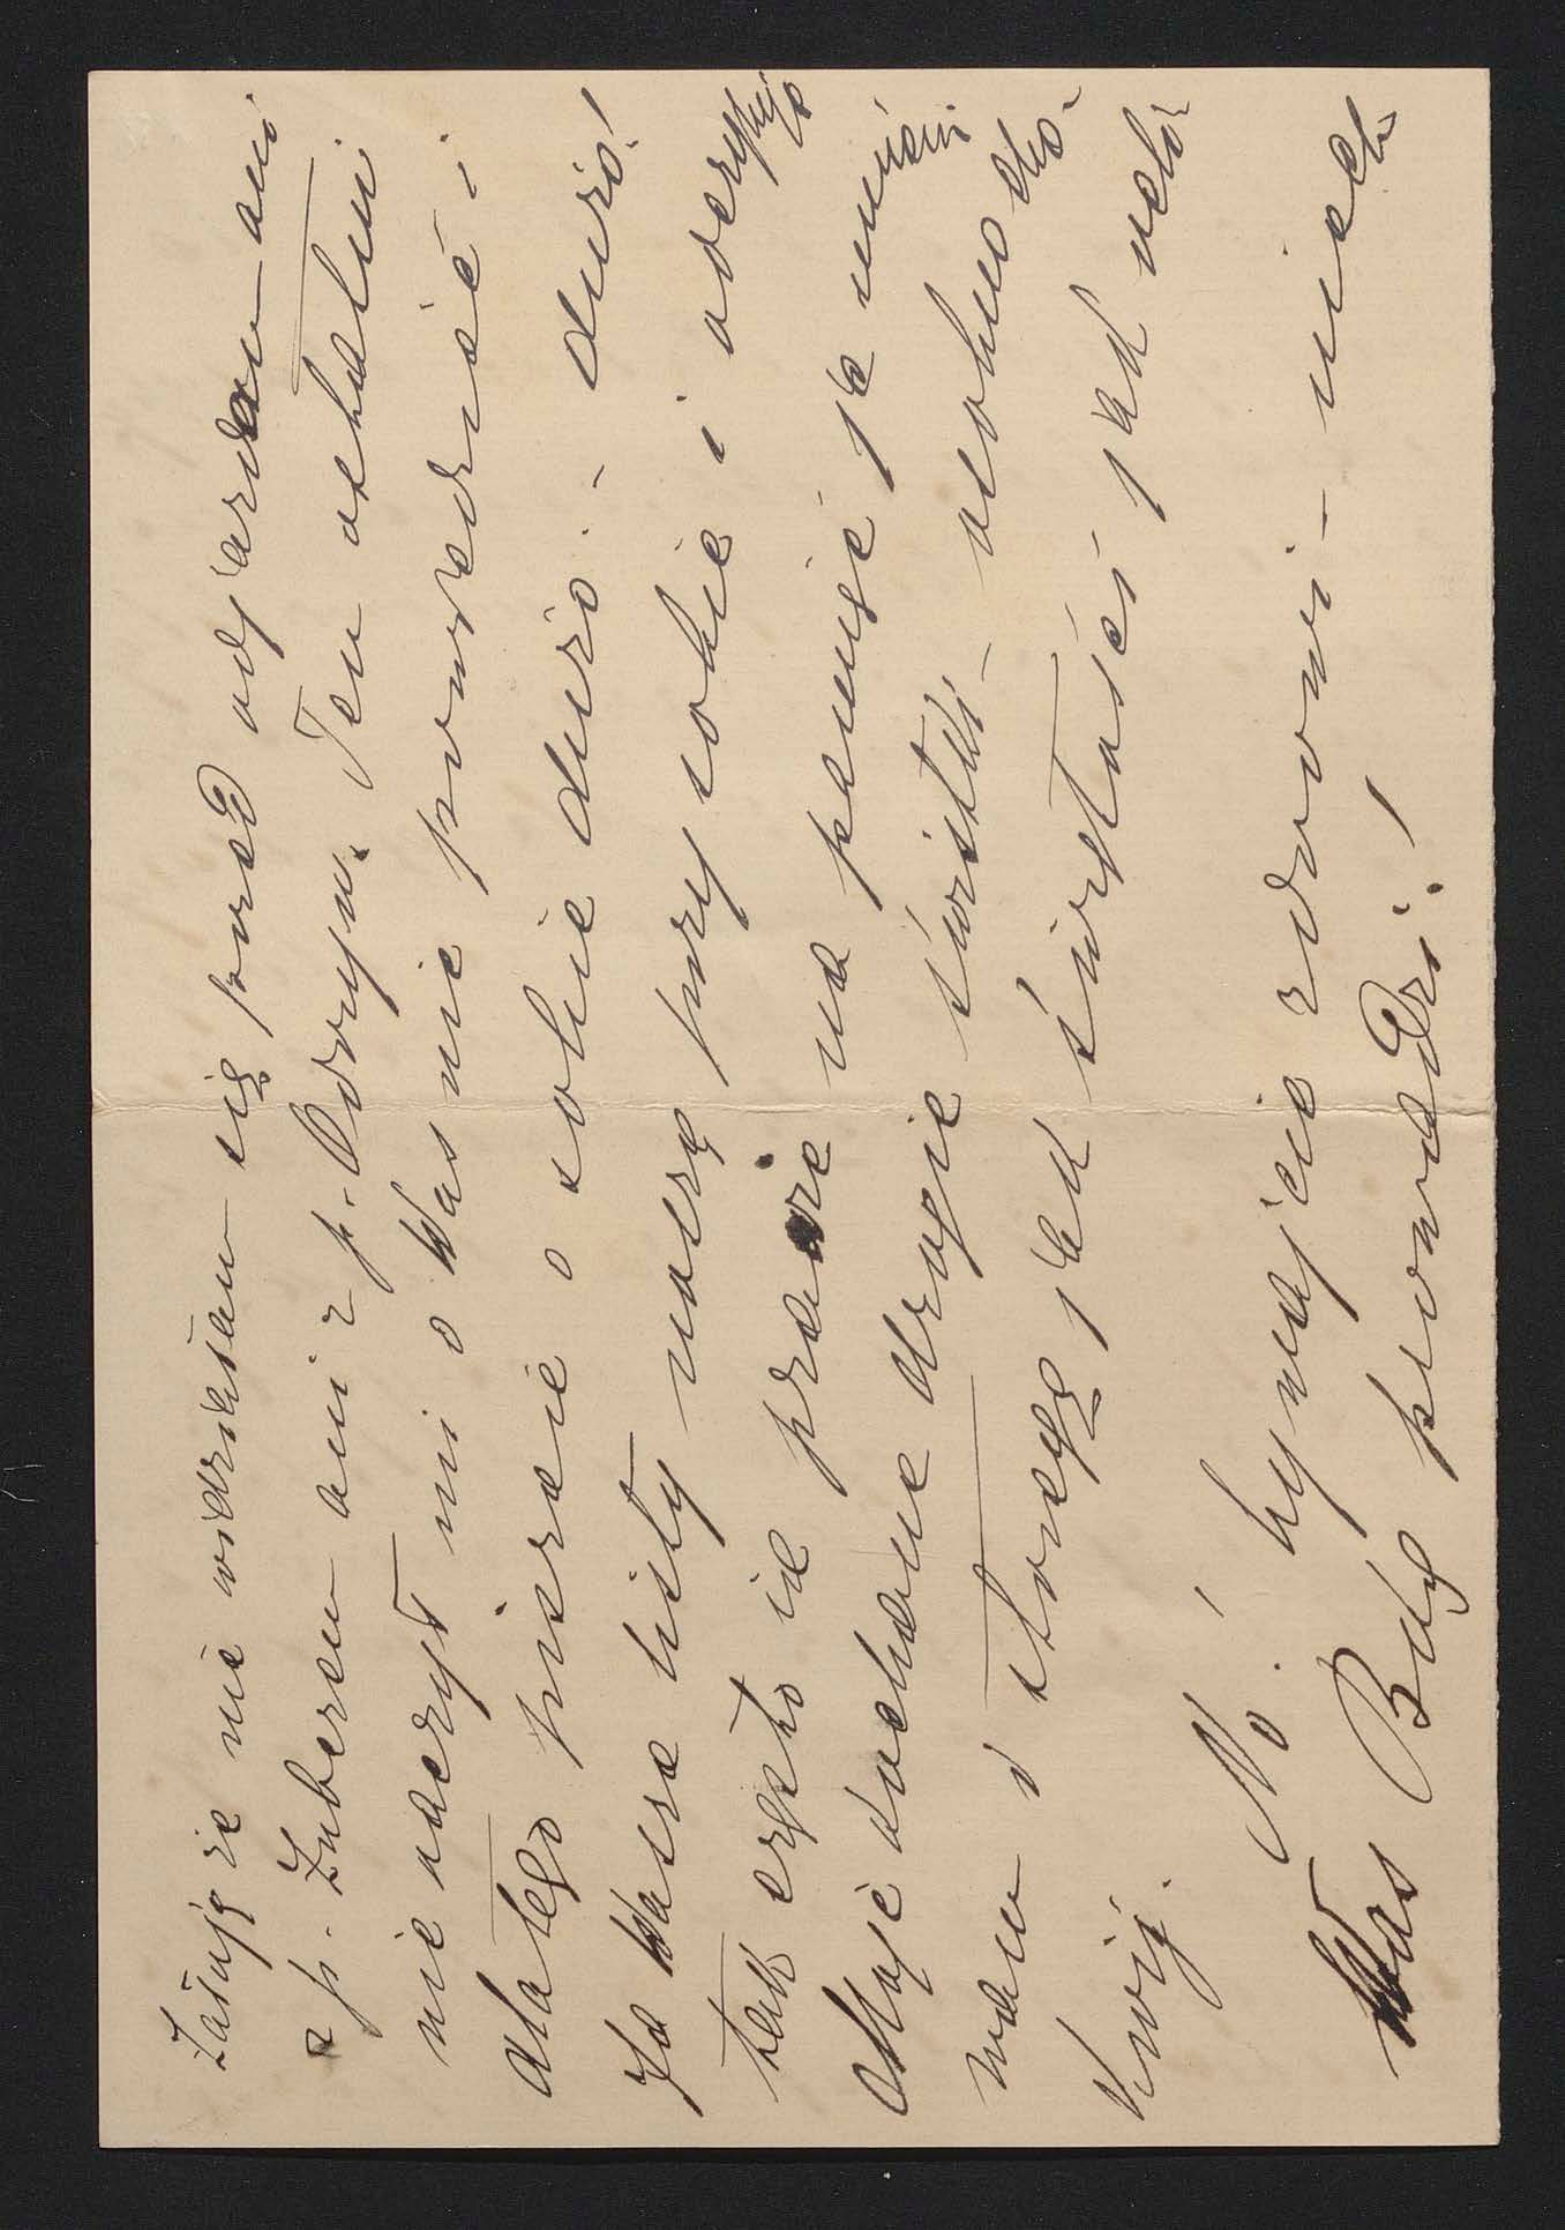 Żałuję że nie widziałam się przed odjazdem ani
z p. Zuberem ani z p. Odrzyw. Ten ostatni
nie raczył mi o Was nic powiedzieć i
dlatego piszcie o sobie dużo. - dużo!
Ja Wasze listy noszę przy sobie i odczytuję
tak często że prawie na pamięć je umiem
Moje kochane drogie świstki - chowam
i strzegę jak świętości jak
Krwij.
No. ! bywajcie zdrowi - niech
Was Bóg prowadzi!